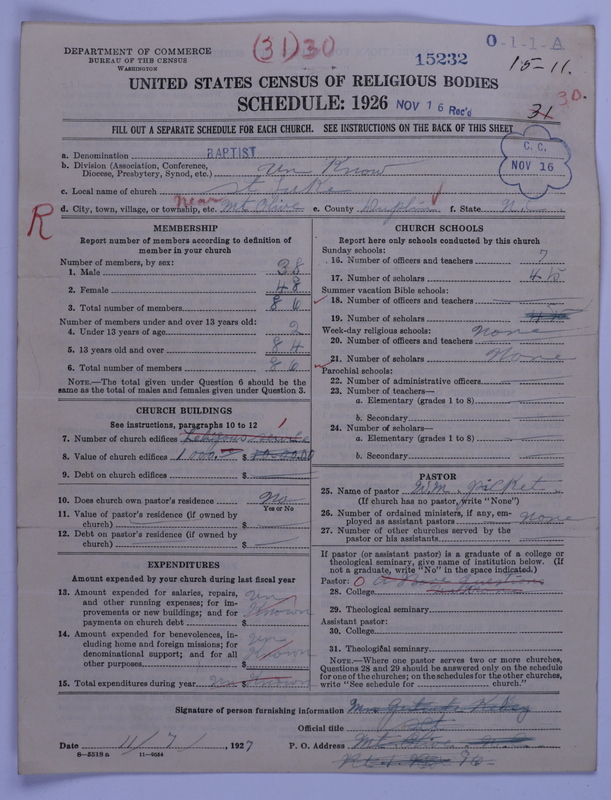 DEPARTMENT OF COMMERCE
BUREAU OF THE CENSUS
WASHINGTON
(31) 30
15232
0-1-1-A
15-11.
UNITED STATES CENSUS OF RELIGIOUS BODIES
SCHEDULE: 1926
NOV 16 Rec'd
31
30.
FILL OUT A SEPARATE SCHEDULE FOR EACH CHURCH. SEE INSTRUCTIONS ON THE BACK OF THIS SHEET
C. C.
NOV 16
a. Denomination BAPTIST
b. Division (Association, Conference, Diocese, Presbytery, Synod, etc.) Un Know
c. Local name of church St Luke
d. City, town, village, or township, etc. near Mt Olive e. County Duplin f. State N.C.
R
MEMBERSHIP
Report number of members according to definition of member in your church
Number of members, by sex:
1. Male 38
2. Female 48
3. Total number of members 86
Number of members under and over 13 years old:
4. Under 13 years of age 2
5. 13 years old and over 84
6. Total number of members 86
NOTE.—The total given under Question 6 should be the same as the total of males and females given under Question 3.
CHURCH BUILDINGS
See instructions, paragraphs 10 to 12
7. Number of church edifices 1
8. Value of church edifices 1000. $
9. Debt on church edifices $
10. Does church own pastor's residence No
Yes or No
11. Value of pastor's residence (if owned by church) $
12. Debt on pastor's residence (if owned by church) $
EXPENDITURES
Amount expended by your church during last fiscal year
13. Amount expended for salaries, repairs, and other running expenses; for improvements or new buildings; and for payments on church debt $ Un Known
14. Amount expended for benevolences, including home and foreign missions; for denominational support; and for all other purposes $ Un Known
15. Total expenditures during year $ Un Known
CHURCH SCHOOLS
Report here only schools conducted by this church
Sunday schools:
16. Number of officers and teachers 7
17. Number of scholars 45
Summer vacation Bible schools:
18. Number of officers and teachers
19. Number of scholars
Week-day religious schools:
20. Number of officers and teachers None
21. Number of scholars None
Parochial schools:
22. Number of administrative officers
23. Number of teachers—
a. Elementary (grades 1 to 8)
b. Secondary
24. Number of scholars—
a. Elementary (grades 1 to 8)
b. Secondary
PASTOR
25. Name of pastor W.M. Picket
(If church has no pastor, write "None")
26. Number of ordained ministers, if any, employed as assistant pastors None
27. Number of other churches served by the pastor or his assistants
If pastor (or assistant pastor) is a graduate of a college or theological seminary, give name of institution below. (If not a graduate, write "No" in the space indicated.)
Pastor: 0
28. College
29. Theological seminary
Assistant pastor:
30. College
31. Theological seminary
NOTE.—Where one pastor serves two or more churches, Questions 28 and 29 should be answered only on the schedule for one of the churches; on the schedules for the other churches, write "See schedule for church."
Signature of person furnishing information Mrs Gertrude
Official title
Date 11/7/, 1927 P. O. Address Mt. Olive N.C.
8-5518a 11-4024